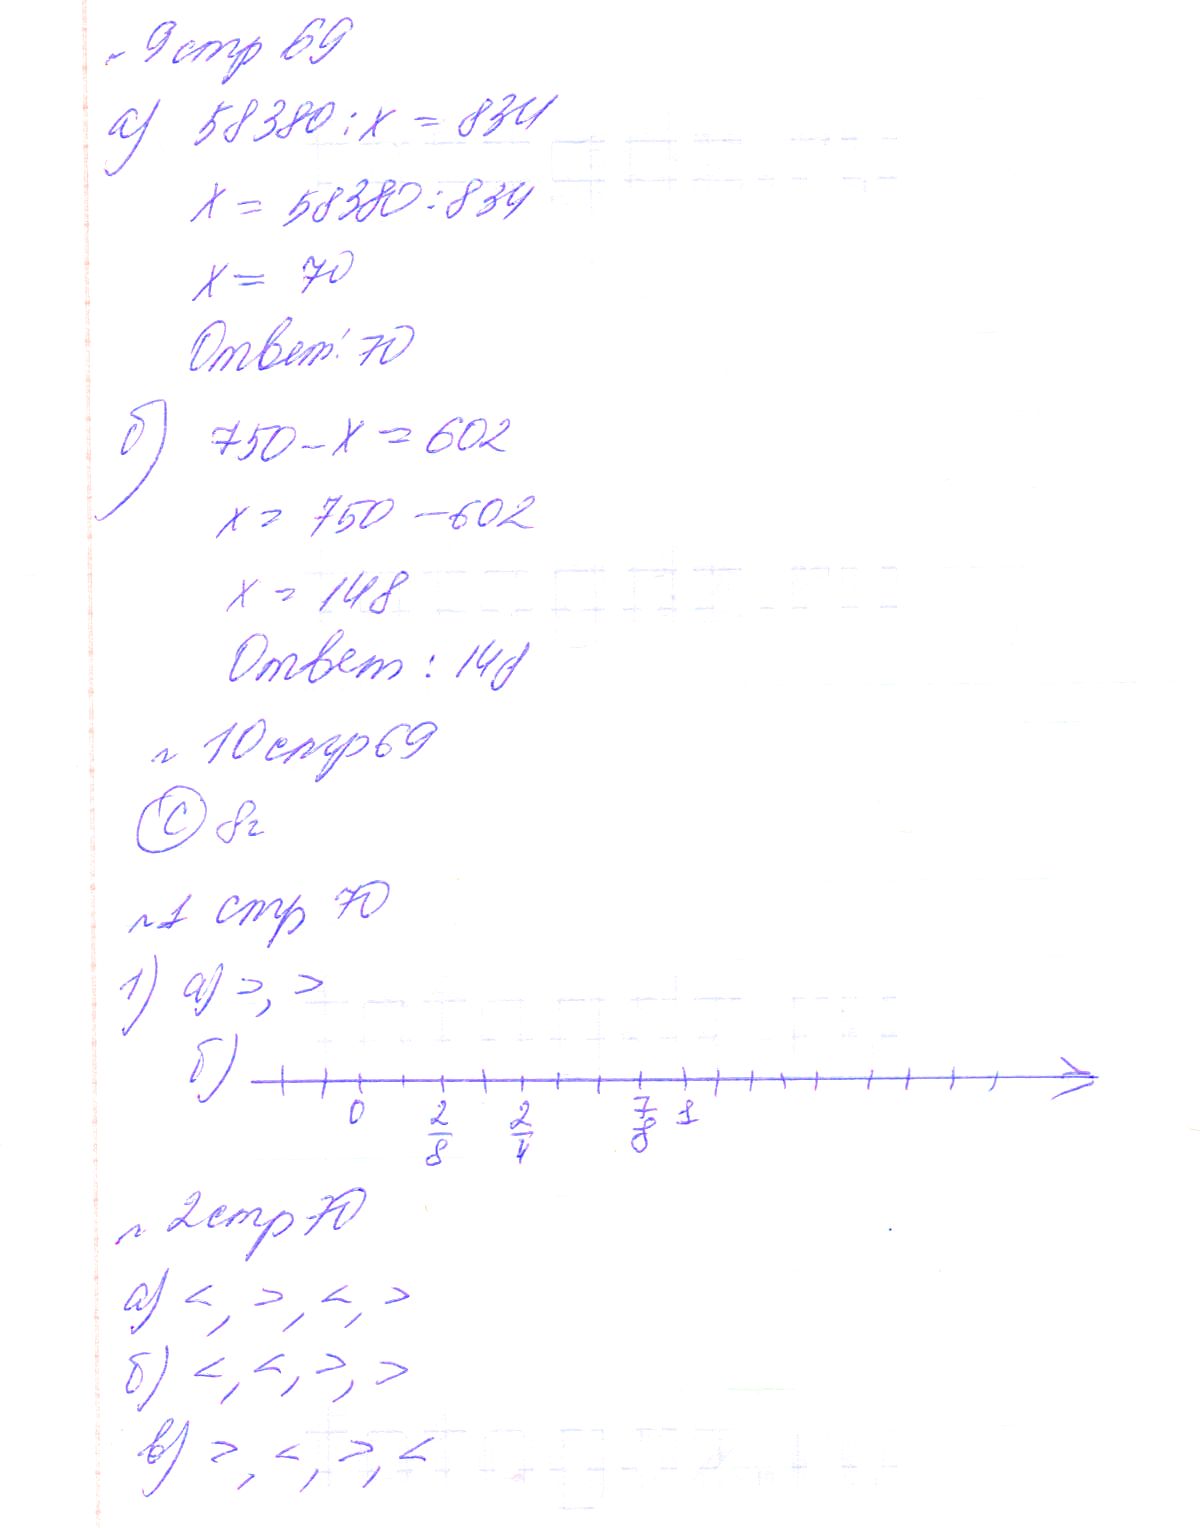 № 9 стр 69
а) 58380 : x = 834
x = 58380 : 834
x = 70
Ответ: 70
б) 750 - x = 602
x = 750 - 602
x = 148
Ответ: 148
№ 10 стр 69
С 8г
№ 1 стр 70
1) а) >, >
б)
0 2/8 2/4 7/8 1
№ 2 стр 70
а) <, >, <, >
б) <, <, >, >
в) >, <, >, <